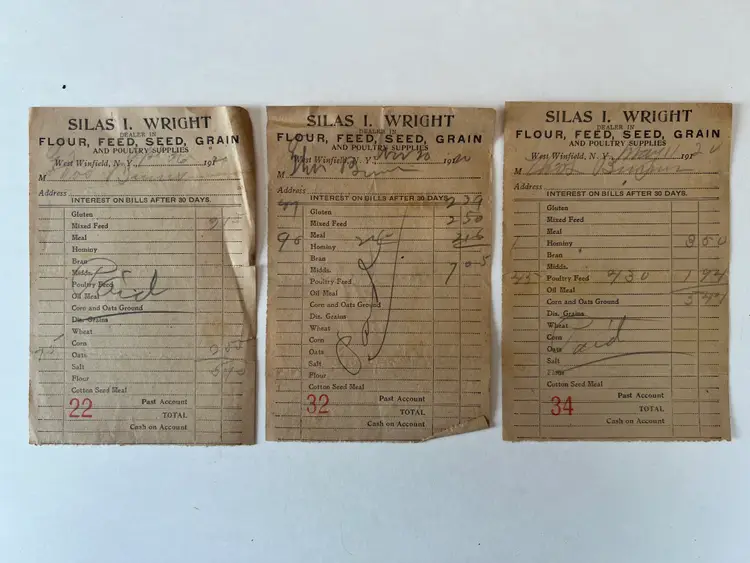 SILAS I. WRIGHT
DEALER IN
FLOUR, FEED, SEED, GRAIN
AND POULTRY SUPPLIES
West Winfield, N. Y. 26 191
M
Address
INTEREST ON BILLS AFTER 30 DAYS.
Gluten
Mixed Feed
Meal
Hominy
Bran
Midds.
Poultry Feed
Paid
Oil Meal
Corn and Oats Ground
Dis. Grains
Wheat
Corn
Oats
Salt
Flour
Cotton Seed Meal
Past Account
22 TOTAL
Cash on Account
SILAS I. WRIGHT
DEALER IN
FLOUR, FEED, SEED, GRAIN
AND POULTRY SUPPLIES
West Winfield, N. Y. 191
M Chas
Address
INTEREST ON BILLS AFTER 30 DAYS.
Gluten 2 39
Mixed Feed 2 50
Meal 2 16
Hominy
Bran
Midds. 7 05
Poultry Feed
Oil Meal
Corn and Oats Ground
Dis. Grains
Wheat
Corn
Paid
Oats
Salt
Flour
Cotton Seed Meal
Past Account
32 TOTAL
Cash on Account
SILAS I. WRIGHT
DEALER IN
FLOUR, FEED, SEED, GRAIN
AND POULTRY SUPPLIES
West Winfield, N. Y. May 11 191 20
M Chas
Address
INTEREST ON BILLS AFTER 30 DAYS.
Gluten
Mixed Feed
Meal
1 Hominy
Bran
Midds.
45 Poultry Feed 430 1 94
Oil Meal
Corn and Oats Ground
Dis. Grains
Wheat
Corn
Paid
Oats
Salt
Flour
Cotton Seed Meal
Past Account
34 TOTAL
Cash on Account